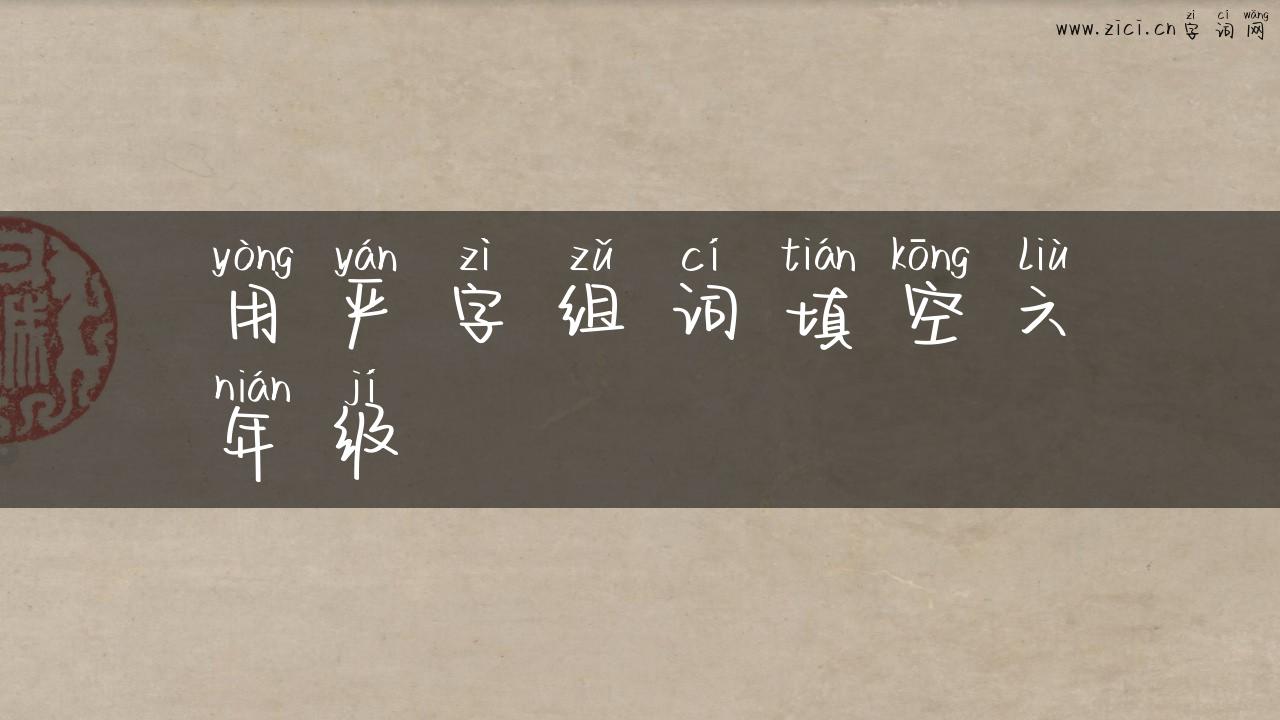 zì cí wǎng
www.zici.cn字词网
yòng yán zì zǔ cí tián kōng liù
用严字组词填空六
nián jí
年级